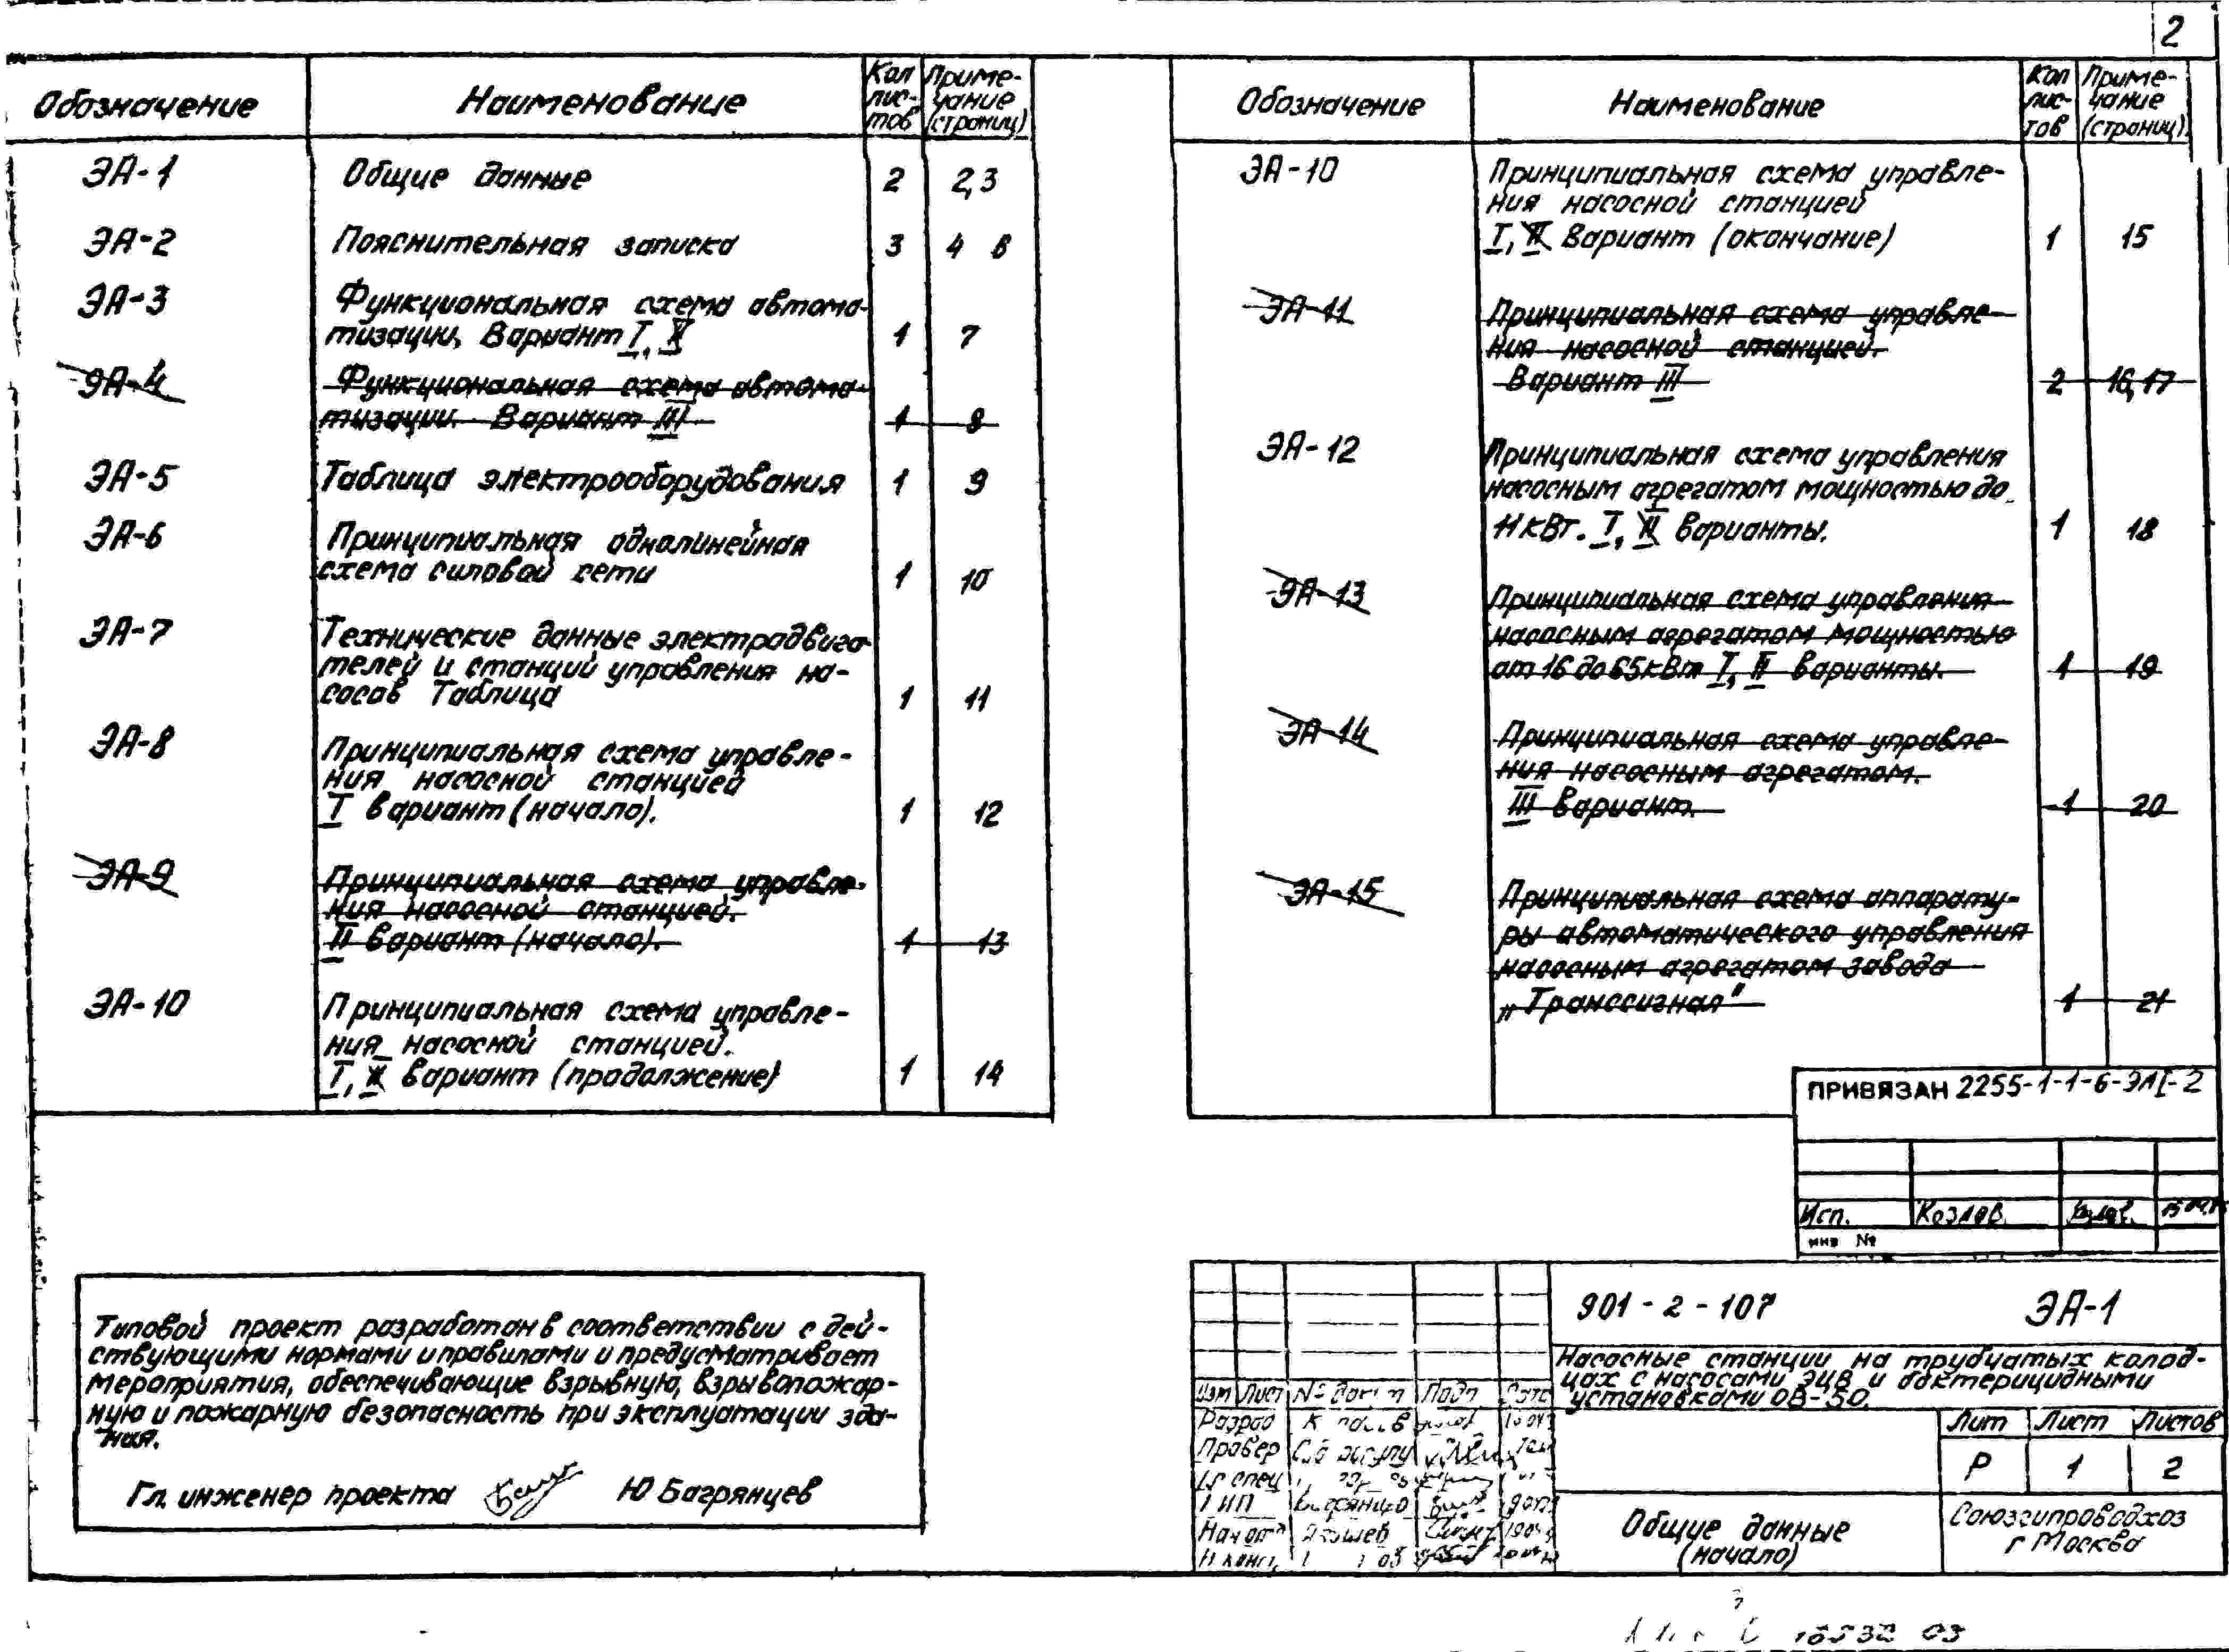 2
Обозначение
Наименование
Кол лис-тов
Приме-чание (страниц)
ЭА-1 Общие данные 2 2,3
ЭА-2 Пояснительная записка 3 4 6
ЭА-3 Функциональная схема автома-
тизации. Вариант I, II 1 7
ЭА-4 Функциональная схема автома-
тизации. Вариант III 1 8
ЭА-5 Таблица электрооборудования 1 9
ЭА-6 Принципиальная однолинейная
схема силовой сети 1 10
ЭА-7 Технические данные электродвига-
телей и станций управления на-
сосов Таблица 1 11
ЭА-8 Принципиальная схема управле-
ния насосной станцией
I вариант (начало). 1 12
ЭА-9 Принципиальная схема управле-
ния насосной станцией.
II вариант (начало). 1 13
ЭА-10 Принципиальная схема управле-
ния насосной станцией.
I, II вариант (продолжение) 1 14
Обозначение
Наименование
Кол лис-тов
Приме-чание (страниц).
ЭА-10 Принципиальная схема управле-
ния насосной станцией
I, II Вариант (окончание) 1 15
ЭА-11 Принципиальная схема управле-
ния насосной станцией.
Вариант III 2 16,17
ЭА-12 Принципиальная схема управления
насосным агрегатом мощностью до
11 кВт. I, II варианты. 1 18
ЭА-13 Принципиальная схема управления
насосным агрегатом мощностью
от 16 до 65 кВт I, II варианты. 1 19
ЭА-14 Принципиальная схема управле-
ния насосным агрегатом.
III вариант. 1 20
ЭА-15 Принципиальная схема аппарату-
ры автоматического управления
насосным агрегатом завода
„Транссигнал" 1 21
ПРИВЯЗАН 2255-1-1-6-ЭАI-2
Исп. Козлов.
инв №
Типовой проект разработан в соответствии с дей-
ствующими нормами и правилами и предусматривает
мероприятия, обеспечивающие взрывную, взрывопожар-
ную и пожарную безопасность при эксплуатации зда-
ния.
Гл. инженер проекта Ю Багрянцев
901 - 2 - 107 ЭА-1
Насосные станции на трубчатых колод-
цах с насосами ЭЦВ и бактерицидными
установками ОВ-50.
Изм Лист № докум Подп Дата
Разраб
Провер
Гл спец
ГИП Багрянцев
Нач отд
Н конт.
Лит Лист Листов
Р 1 2
Общие данные
(начало)
Союзгипроводхоз
г Москва